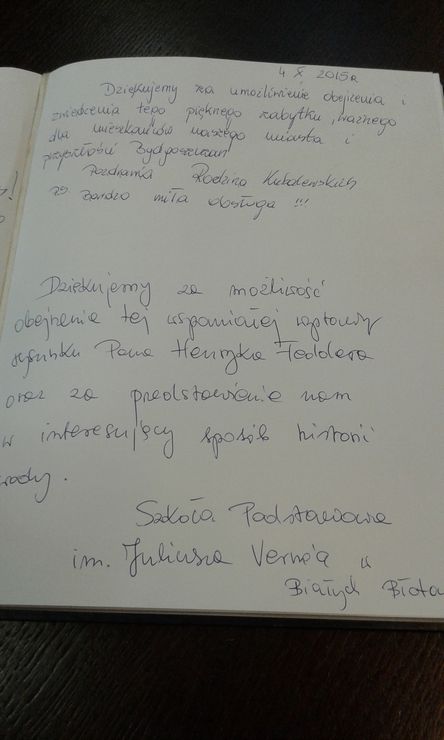 4 X 2015r.
Dziękujemy za umożliwienie obejrzenia i
zwiedzenia tego pięknego zabytku, ważnego
dla mieszkańców naszego miasta i
przyszłości Bydgoszczan
Pozdrawia Rodzina
PS. Bardzo miła obsługa !!!
Dziękujemy za możliwość
obejrzenia tej wspaniałej wystawy
rysunku Pana Henryka
oraz za przedstawienie nam
w interesujący sposób historii
Szkoła Podstawowa
im. Juliusza Verne'a w
Białych Błota